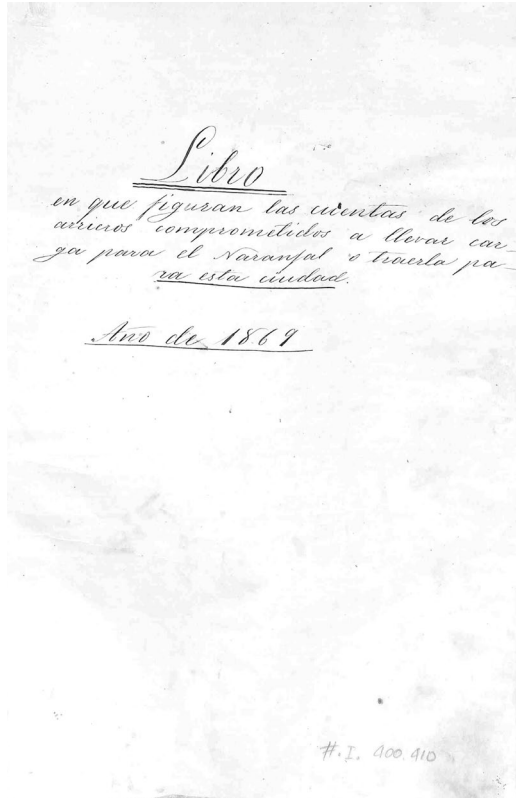 Libro
en que figuran las cuentas de los
arrieros comprometidos a llevar car
ga para el Naranjal o traerla pa-
ra esta ciudad.
Año de 1869
#. I. 400.410